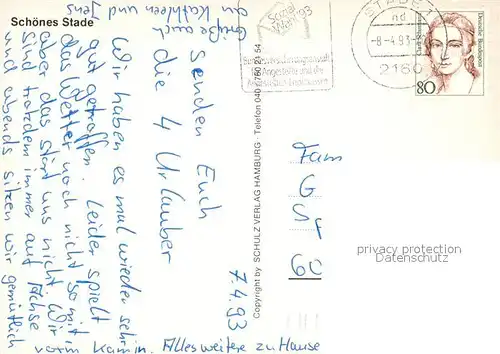 Schönes Stade
7.4.93
Wir haben es mal wieder sehr
gut getroffen. Leider spielt
das Wetter noch nicht so mit,
aber das stört uns nicht. Wir
sind trotzdem immer auf Achse
und abends sitzen wir gemütlich
vorm Kamin. Alles weitere zu Hause
senden Euch
die 4 Urlauber
Grüße auch
an Kathleen und Jens
Copyright by SCHULZ VERLAG HAMBURG · Telefon 040 (760 2) 54
Sozial
Wahl '93
Bundesversicherungsanstalt
für Angestellte und der
Angestellten-Ersatzkassen
STADE 1
nd
-8.-4.93-
2160
Deutsche Bundespost
80
Fam
G
St
60
privacy protection
Datenschutz